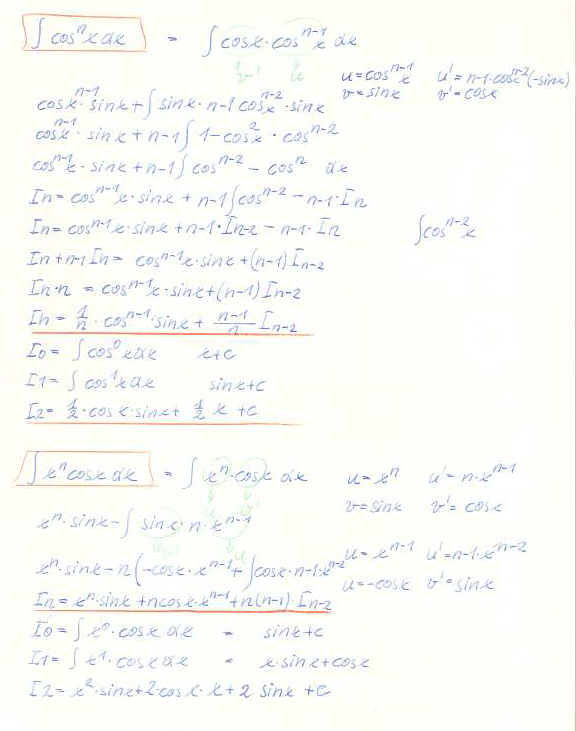 ∫ cosⁿx dx = ∫ cosx · cosⁿ⁻¹x dx
v' u
u = cosⁿ⁻¹x u' = n-1·cosⁿ⁻²x(-sinx)
v = sinx v' = cosx
cosⁿ⁻¹x · sinx + ∫ sinx · n-1 cosⁿ⁻²x · sinx
cosⁿ⁻¹x · sinx + n-1 ∫ 1-cos²x · cosⁿ⁻²
cosⁿ⁻¹x · sinx + n-1 ∫ cosⁿ⁻² - cosⁿ dx
In = cosⁿ⁻¹x · sinx + n-1 ∫cosⁿ⁻² - n-1·In
In = cosⁿ⁻¹x · sinx + n-1 · In-2 - n-1 · In ∫cosⁿ⁻²x
In + n-1 In = cosⁿ⁻¹x · sinx + (n-1) In-2
In·n = cosⁿ⁻¹x · sinx + (n-1) In-2
In = 1/n · cosⁿ⁻¹ · sinx + (n-1)/n In-2
I0 = ∫ cos⁰x dx x+c
I1 = ∫ cos¹x dx sinx+c
I2 = 1/2 · cosx · sinx + 1/2 x + c
∫ xⁿ cosx dx = ∫ xⁿ · cosx dx u = xⁿ u' = n · xⁿ⁻¹
u v'
v = sinx v' = cosx
xⁿ · sinx - ∫ sinx · n · xⁿ⁻¹
v' u
u = xⁿ⁻¹ u' = n-1·xⁿ⁻²
xⁿ · sinx - n (-cosx · xⁿ⁻¹ + ∫cosx · n-1 · xⁿ⁻²
u = -cosx v' = sinx
In = xⁿ · sinx + n cosx · xⁿ⁻¹ + n(n-1) · In-2
I0 = ∫ x⁰ · cosx dx = sinx+c
I1 = ∫ x¹ · cosx dx = x · sinx + cosx
I2 = x² · sinx + 2·cosx · x + 2 sinx + c